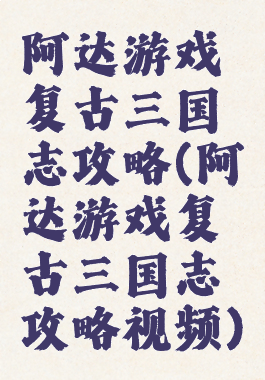 阿达游戏
复古三国
志攻略(阿
达游戏复
古三国志
攻略视频)